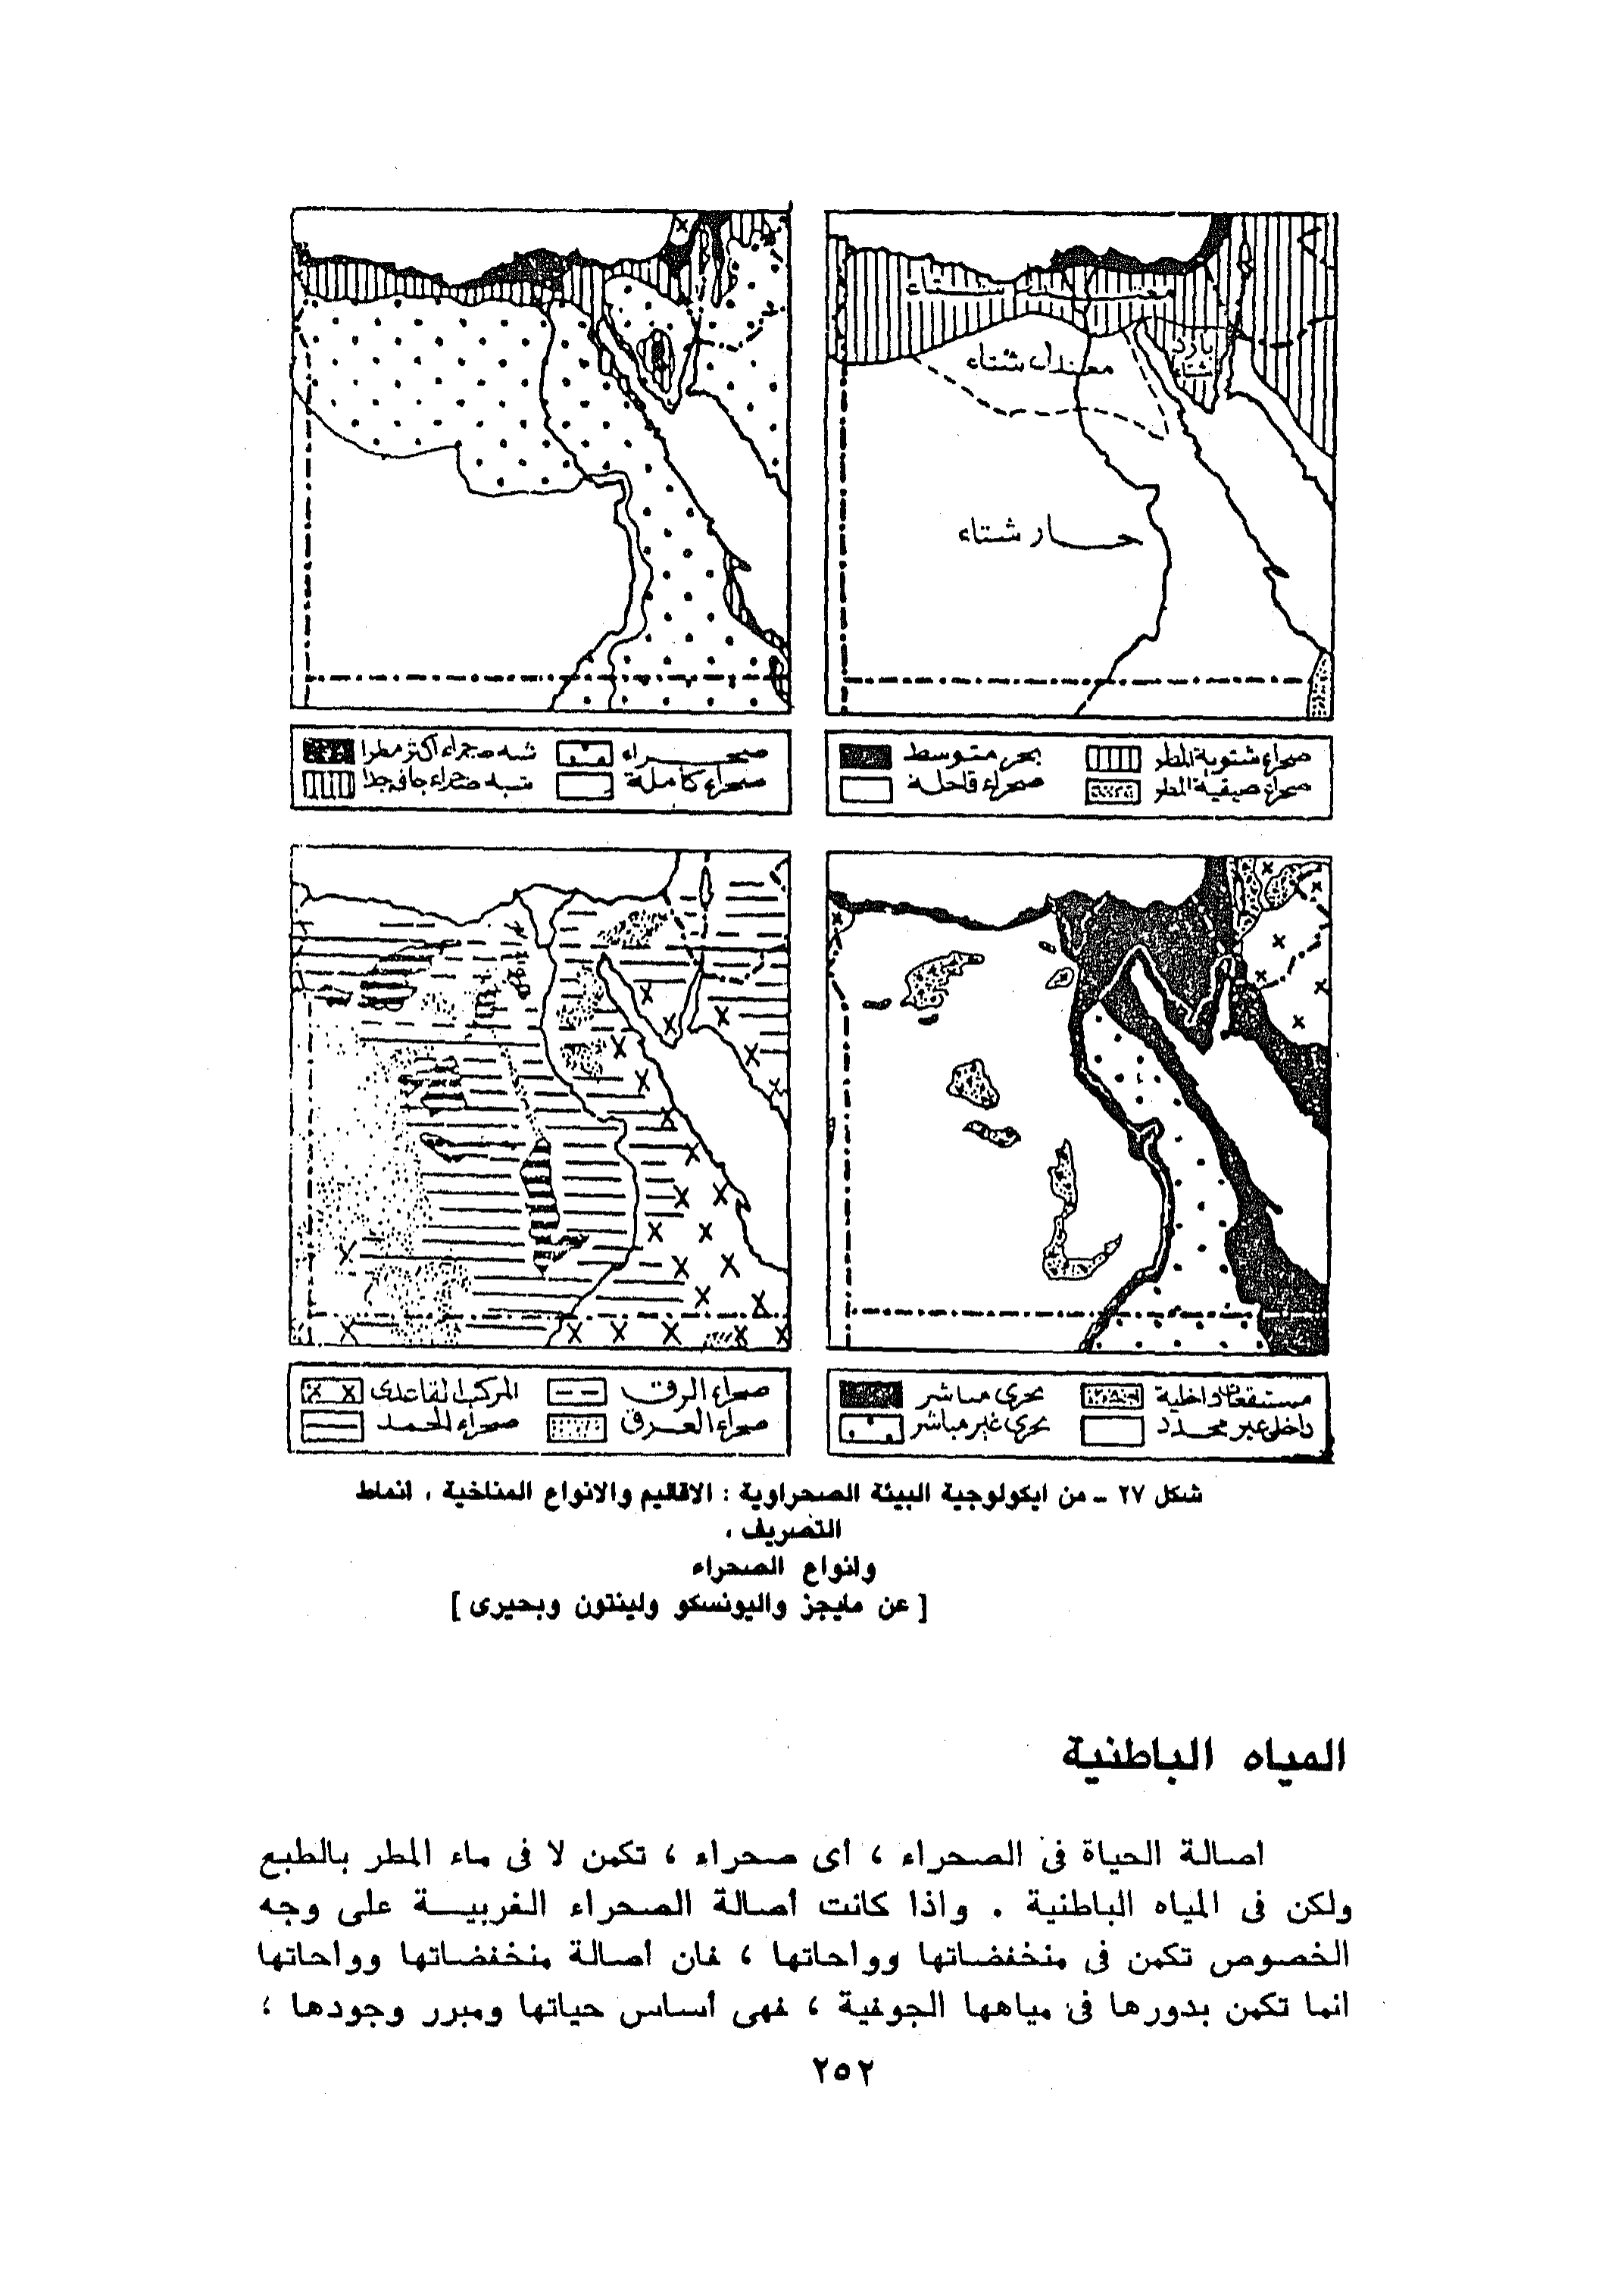 معتدل شتاء
بارد
شتاء
معتدل شتاء
حار شتاء
صحراء شتوية المطر
بحر متوسط
صحراء صيفية المطر
صحراء قاحلة
صحراء
شبه صحراء أكثر مطرا
صحراء كاملة
شبه صحراء جافة جدا
مستنقعات داخلية
بحرى مباشر
داخلى غير محدد
بحرى غير مباشر
صحراء الرق
المركب القاعدى
صحراء العرق
صحراء الحمد
شكل ٢٧ ـ من ايكولوجية البيئة الصحراوية : الاقاليم والانواع المناخية ، انماط
التصريف ،
وانواع الصحراء
[ عن مايجز واليونسكو ولينتون وبحيرى ]
المياه الباطنية
اصالة الحياة فى الصحراء ، أى صحراء ، تكمن لا فى ماء المطر بالطبع
ولكن فى المياه الباطنية . واذا كانت أصالة الصحراء الغربيــة على وجه
الخصوص تكمن فى منخفضاتها وواحاتها ، فان أصالة منخفضاتها وواحاتها
انما تكمن بدورها فى مياهها الجوفية ، فهى أساس حياتها ومبرر وجودها ؛
٢٥٢